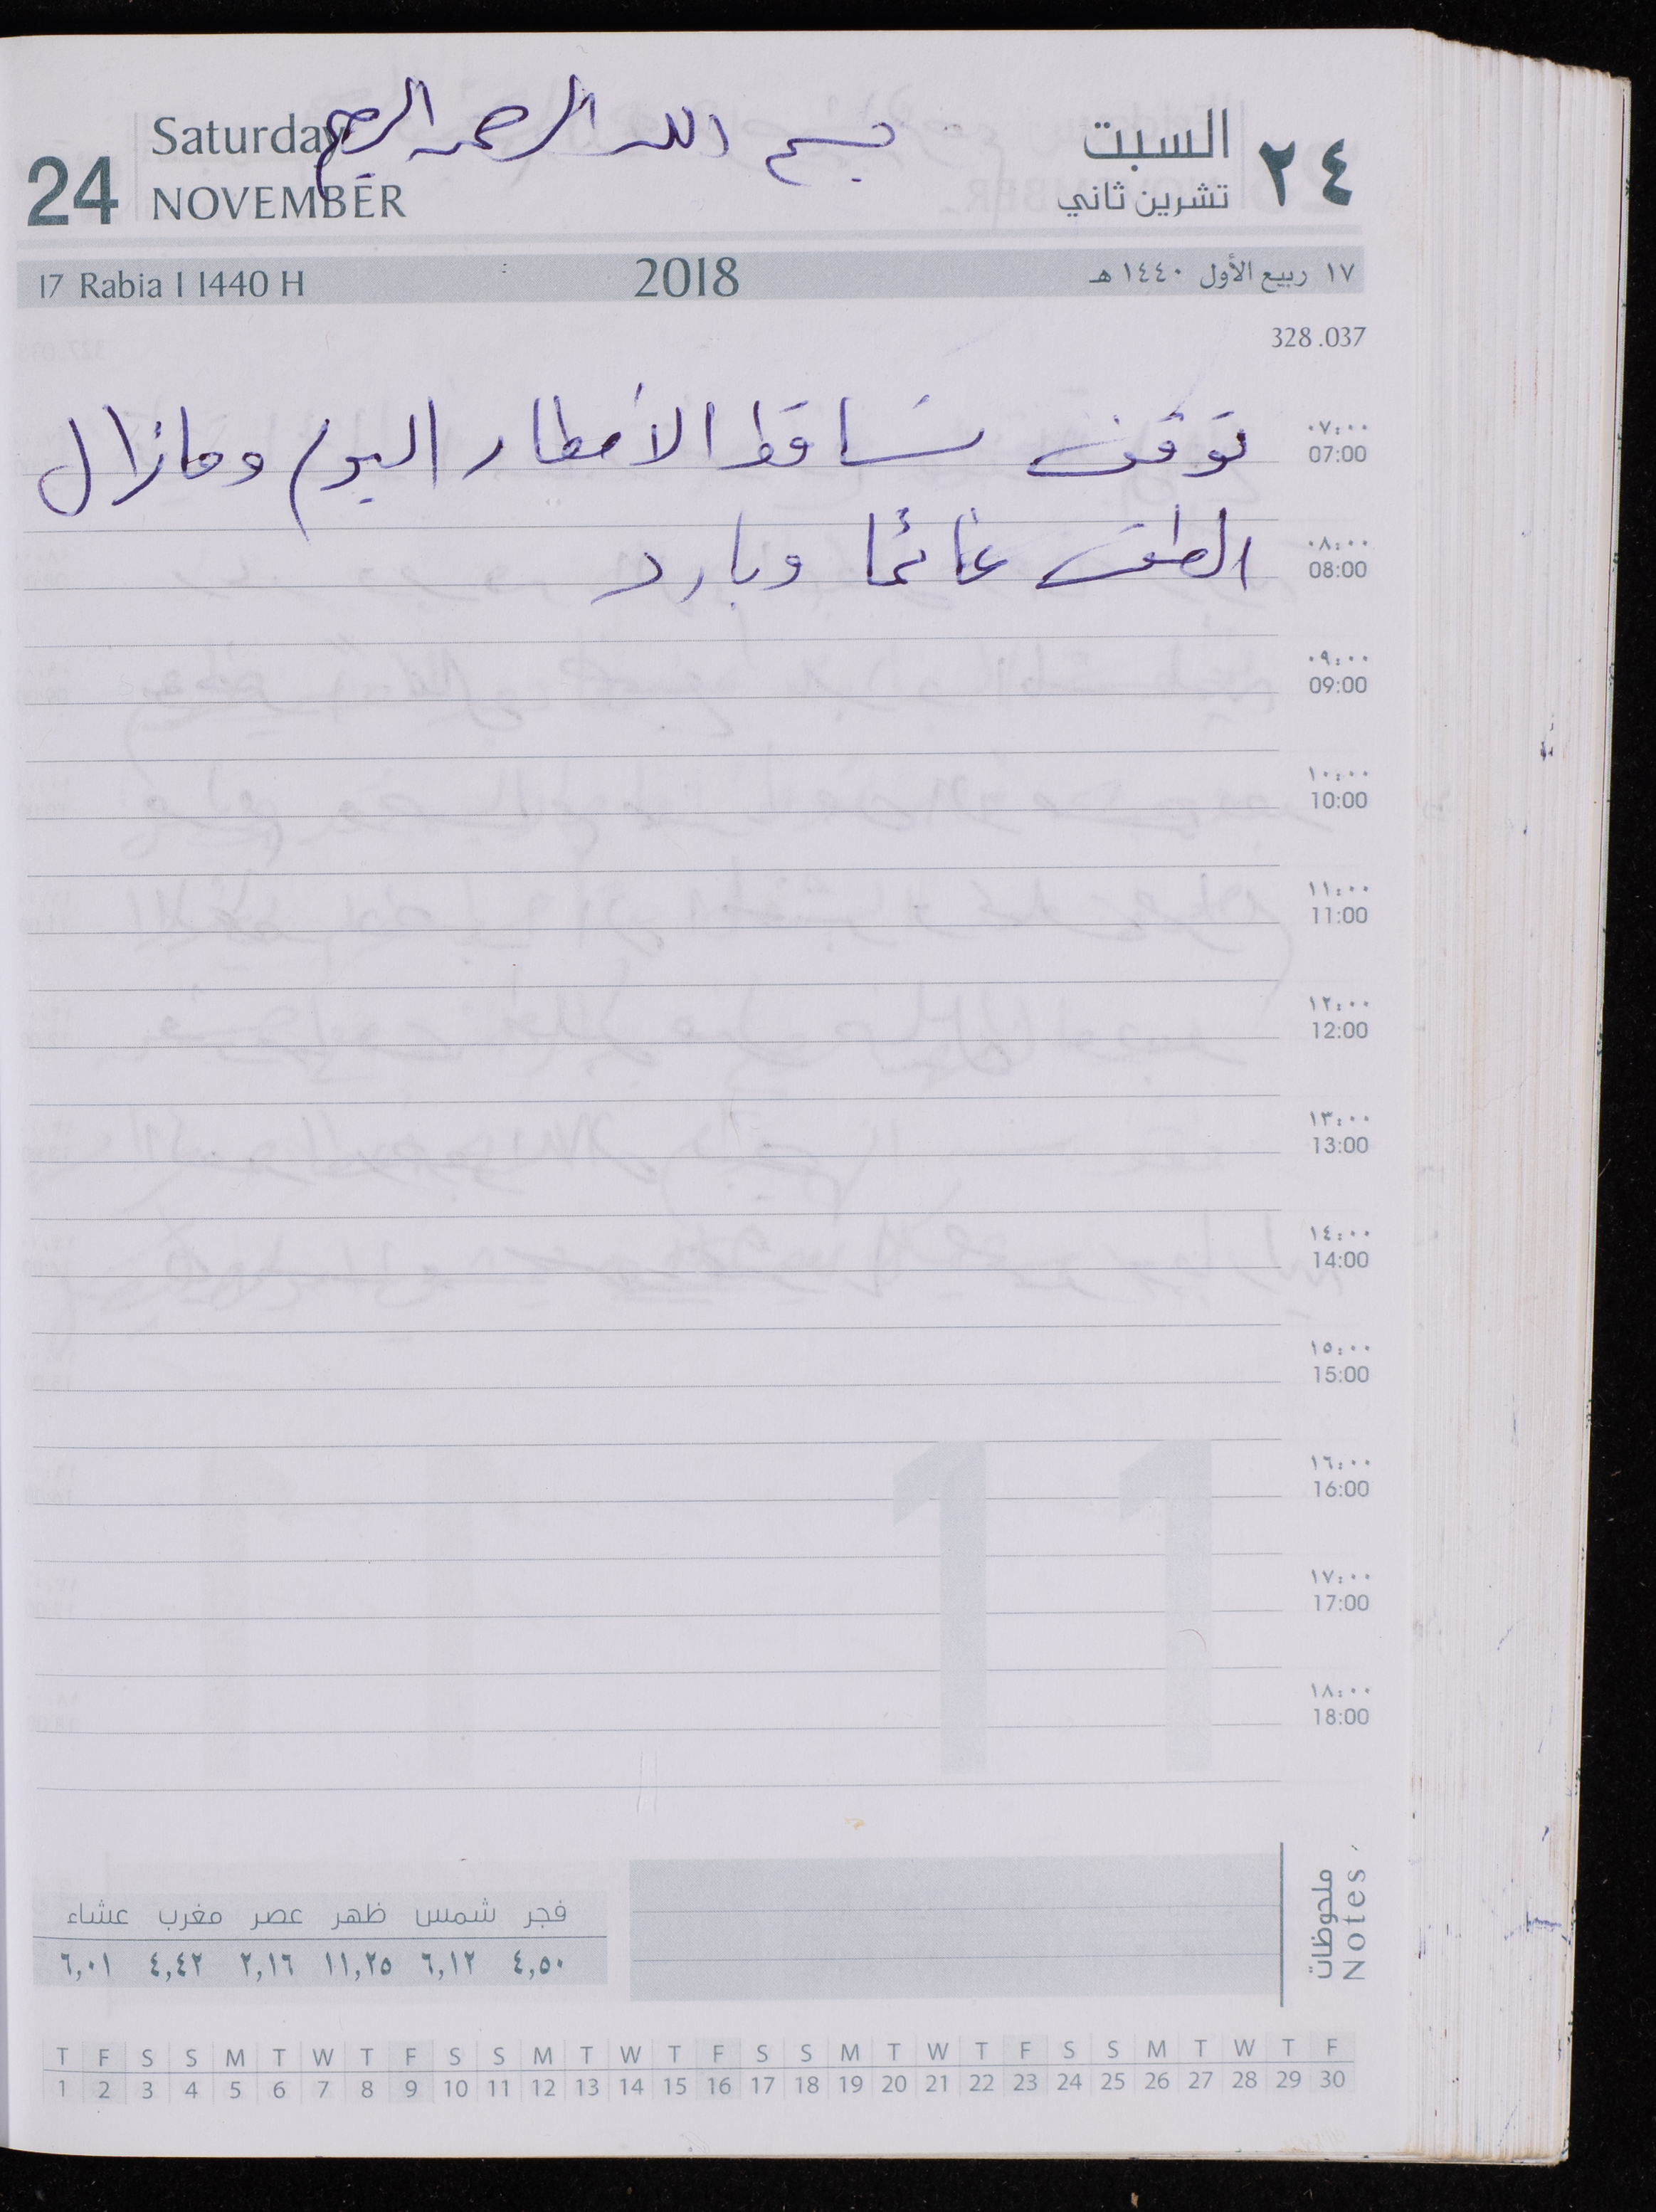 بسم الله الرحمن الرحيم
Saturday
24
NOVEMBER
السبت
٢٤
تشرين ثاني
17 Rabia I 1440 H
2018
١٧ ربيع الأول ١٤٤٠ هـ
328.037
٠٧:٠٠
07:00
توقف تساقط الأمطار اليوم ومازال
٠٨:٠٠
08:00
الطقس غائما وبارد
٠٩:٠٠
09:00
١٠:٠٠
10:00
١١:٠٠
11:00
١٢:٠٠
12:00
١٣:٠٠
13:00
١٤:٠٠
14:00
١٥:٠٠
15:00
١٦:٠٠
16:00
11
١٧:٠٠
17:00
١٨:٠٠
18:00
ملحوظات
Notes
فجر شمس ظهر عصر مغرب عشاء
٤,٥٠ ٦,١٢ ١١,٢٥ ٢,١٦ ٤,٤٢ ٦,٠١
T F S S M T W T F S S M T W T F S S M T W T F S S M T W T F
1 2 3 4 5 6 7 8 9 10 11 12 13 14 15 16 17 18 19 20 21 22 23 24 25 26 27 28 29 30